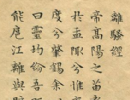 離騷經
帝高陽之苗
於孟陬兮惟
度兮肇錫余
曰靈均紛吾
能扈江離與